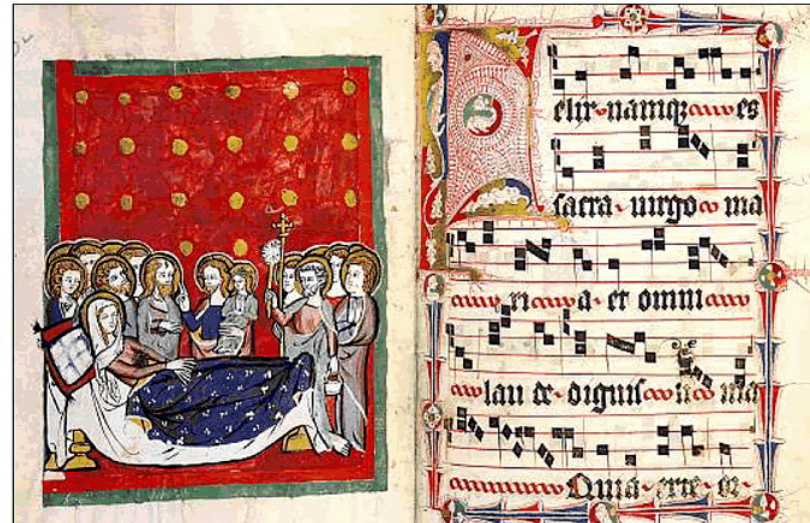 Felix namq; es
sacra uirgo ma
ri a et omni
lau de dignissi ma
Quia ex te or